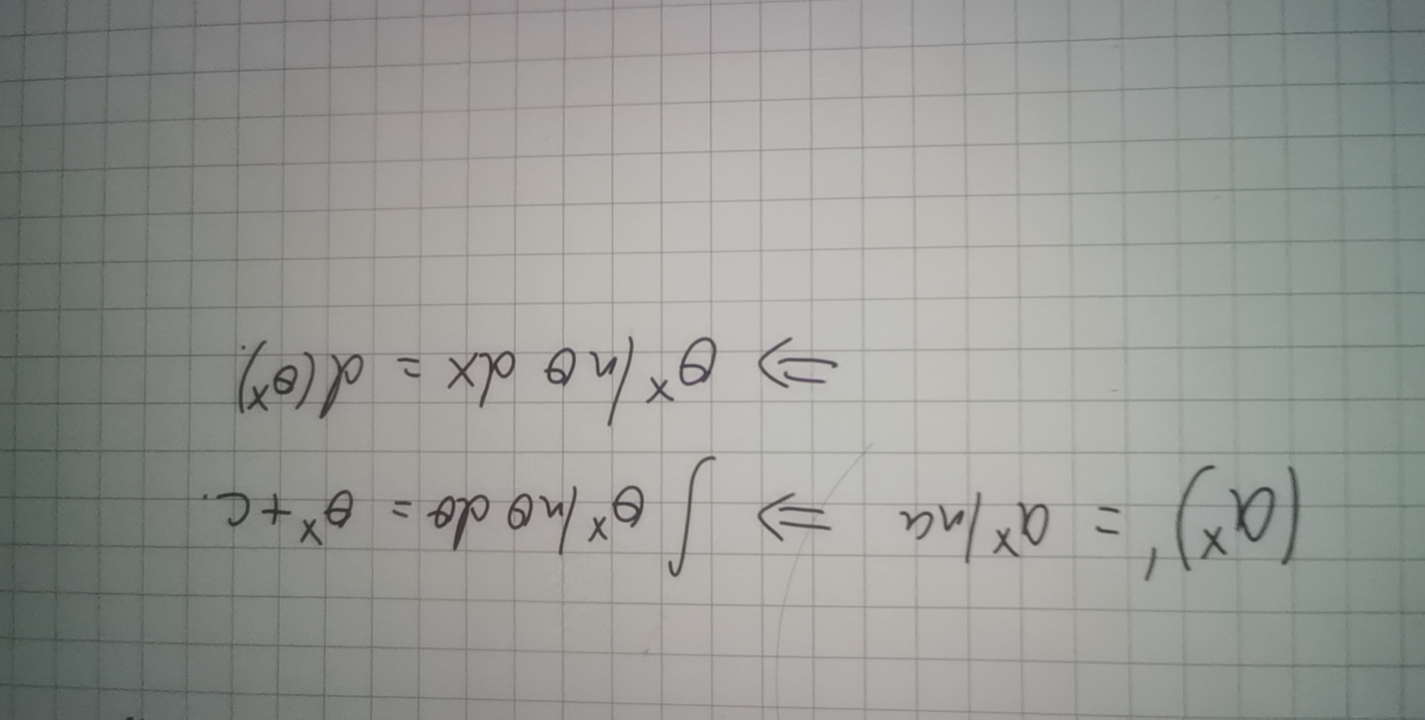 (a^x)' = a^x ln a ⇒ ∫ θ^x ln θ dθ = θ^x + C.
⇒ θ^x ln θ dx = d(θ^x).